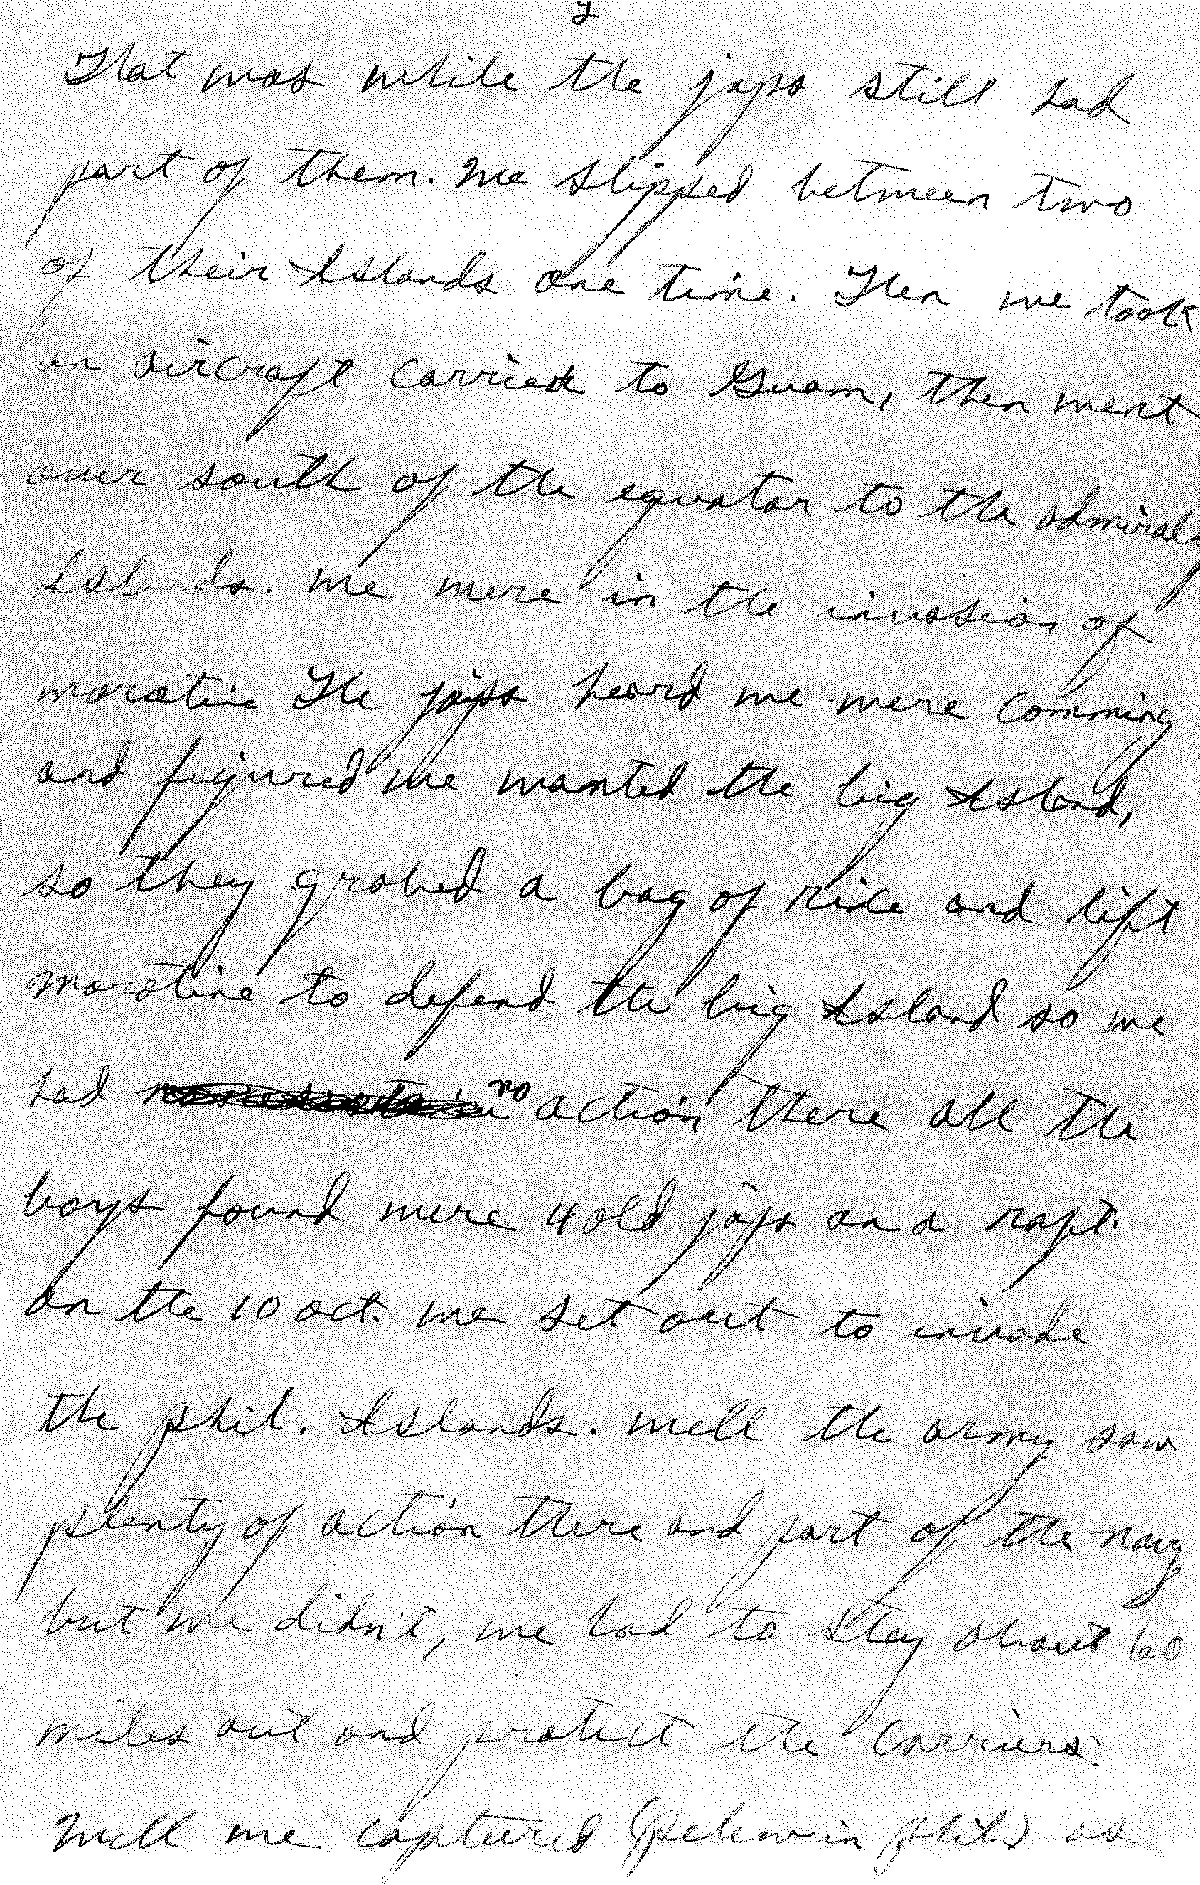 That was while the japs still had
part of them. We slipped between two
of their Islands one time. Then we took
an aircraft carrier to Guam, then went
over south of the equator to the admiralty
Islands. we were in the invasion of
moratie The japs heard we were comming
and figured we wanted the big Island,
so they grabed a bag of rice and left
moratine to defend the big Island so we
had no action there all the
boys found were 4 old japs on a raft.
on the 10 oct. we set out to invade
the phil. Islands. well the army saw
plenty of action there and part of the navy
but we didn't, we had to stay about 60
miles out and protect the Carriers.
Well we captured (Pelew in phil) as